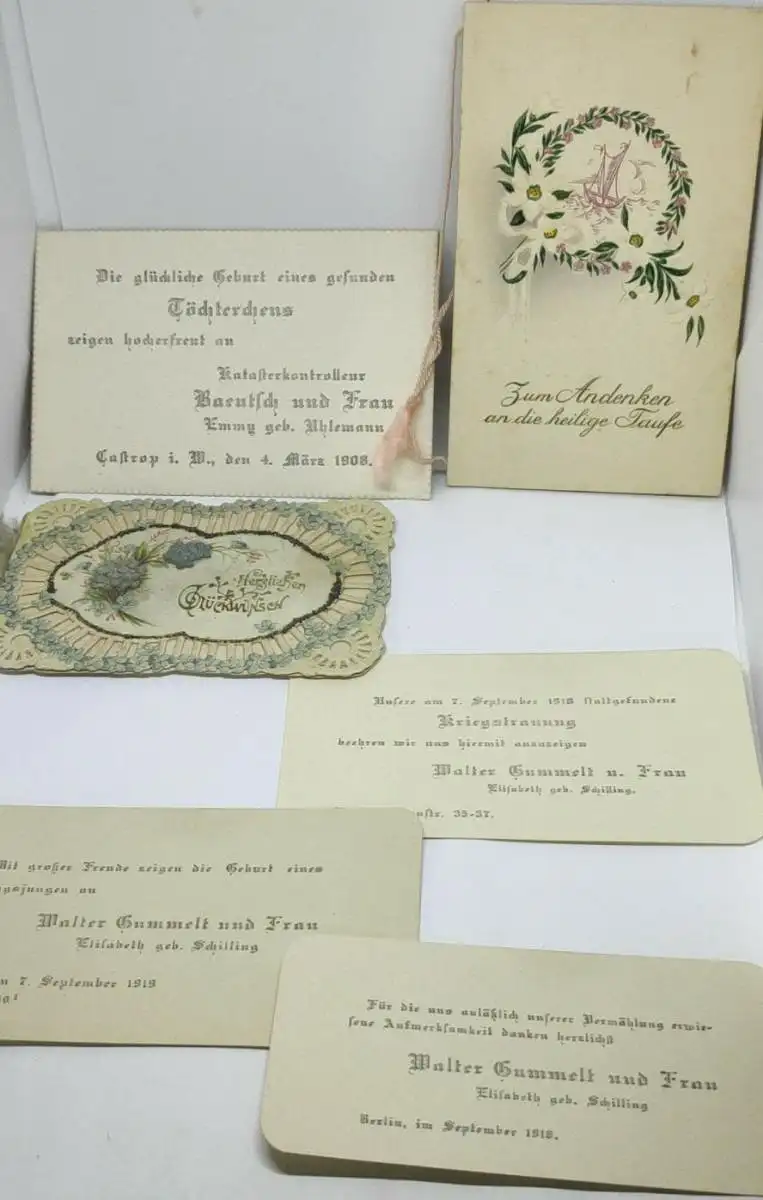 Die glückliche Geburt eines gesunden
Töchterchens
zeigen hocherfreut an
Katasterkontrolleur
Baentsch und Frau
Emmy geb. Uhlemann
Castrop i. W., den 4. März 1908.
Zum Andenken
an die heilige Taufe
Herzlichen
Glückwunsch
Unsere am 7. September 1918 stattgefundene
Kriegstrauung
beehren wir uns hiermit anzuzeigen
Walter Gummelt u. Frau
Elisabeth geb. Schilling.
str. 35-37.
Mit großer Freude zeigen die Geburt eines
gsjungen an
Walter Gummelt und Frau
Elisabeth geb. Schilling
7. September 1919
Für die uns anläßlich unserer Vermählung erwie-
sene Aufmerksamkeit danken herzlichst
Walter Gummelt und Frau
Elisabeth geb. Schilling
Berlin, im September 1918.